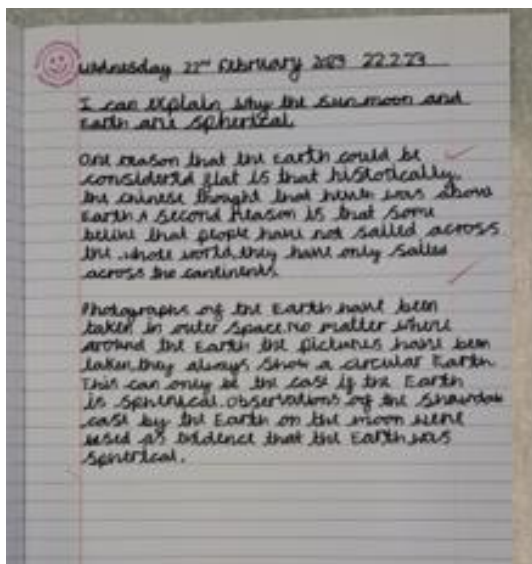 Wednesday 22nd February 2023 22.2.23
I can explain why the sun moon and
Earth are spherical
One reason that the Earth could be
considered flat is that historically,
the chinese thought that was above
Earth. A second reason is that some
that people have not sailed across
the whole world, they have only sailed
across the continents.
Photographs of the Earth have been
taken in outer space. No matter where
around the Earth the pictures have been
taken, they always show a circular Earth.
This can only be the case if the Earth
is spherical. Observations of the
case by the Earth on the moon were
used as that the Earth was
spherical.